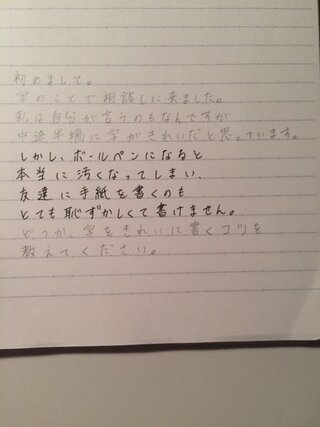 初めまして。
字のことで相談しに来ました。
私は自分が言うのもなんですが
中途半端に字がきれいだと思っています。
しかし、ボールペンになると
本当に汚くなってしまい、
友達に手紙を書くのも
とても恥ずかしくて書けません。
どうか、字をきれいに書くコツを
教えてください。